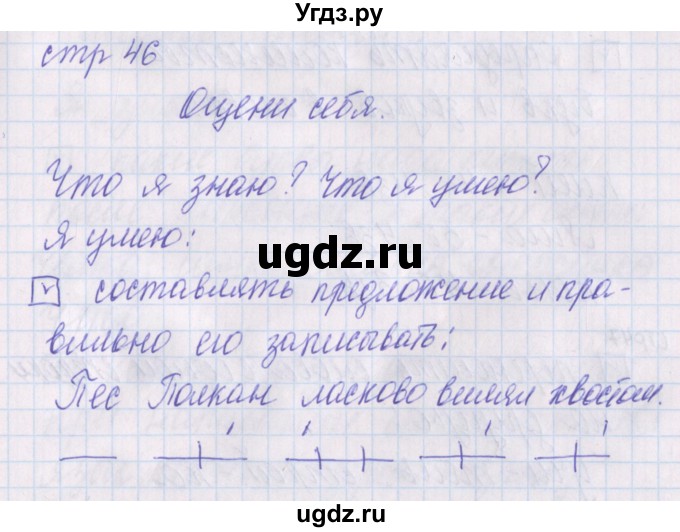 Угдз.ру
стр 46
Оцени себя.
Что я знаю? Что я умею?
Я умею:
ugdz.ru
составлять предложение и пра-
вильно его записывать:
Пес Полкан ласково вилял хвостом.
ugdz.ru